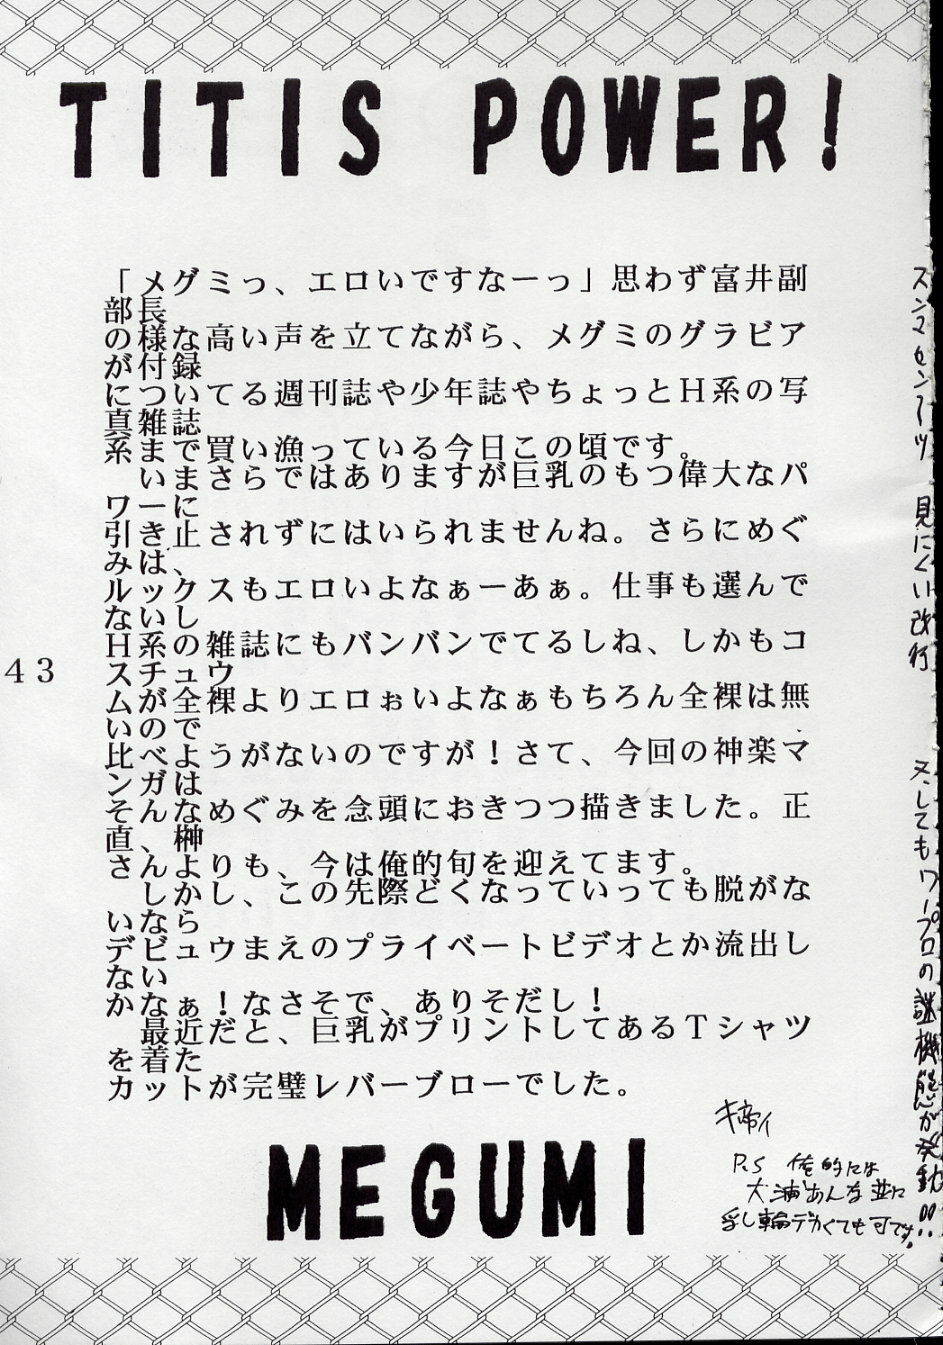 TITIS POWER!
「メグミっ、エロいですなーっ」思わず富井副
部長
の様な高い声を立てながら、メグミのグラビア
が付録
についてる週刊誌や少年誌やちょっとH系の写
真雑誌
系まで買い漁っている今日この頃です。
いまさらではありますが巨乳のもつ偉大なパ
ワーに
引き止されずにはいられませんね。さらにめぐ
みは、
ルックスもエロいよなぁーあぁ。仕事も選んで
ないし
H系の雑誌にもバンバンでてるしね、しかもコ
スチュウ
ムが全裸よりエロぉいよなぁもちろん全裸は無
いので
比べようがないのですが！さて、今回の神楽マ
ンガは
そんなめぐみを念頭におきつつ描きました。正
直、榊
さんよりも、今は俺的旬を迎えてます。
しかし、この先際どくなっていっても脱がな
いなら
デビュウまえのプライベートビデオとか流出し
ない
かなぁ！なさそで、ありそだし！
最近だと、巨乳がプリントしてあるTシャツ
を着た
カットが完璧レバーブローでした。
MEGUMI
P.S 俺的には
大浦あんな並に
乳し輪デカくても可です。
スンマセンーッ 見にくい改行
又してもワープロの謎機能が発動!!
43